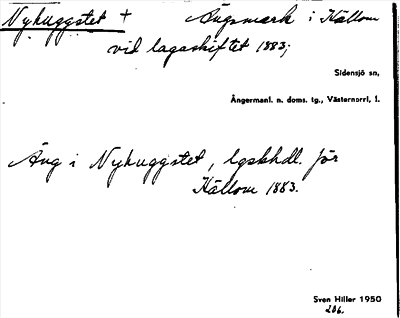 Nyhuggstet + Ängsmark i Källom
vid lagaskiftet 1883;
Sidensjö sn,
Ångermanl. n. doms. tg., Västernorrl. l.
Äng i Nyhuggstet, lgskhdl. för
Källom 1883.
Sven Hiller 1950
206.